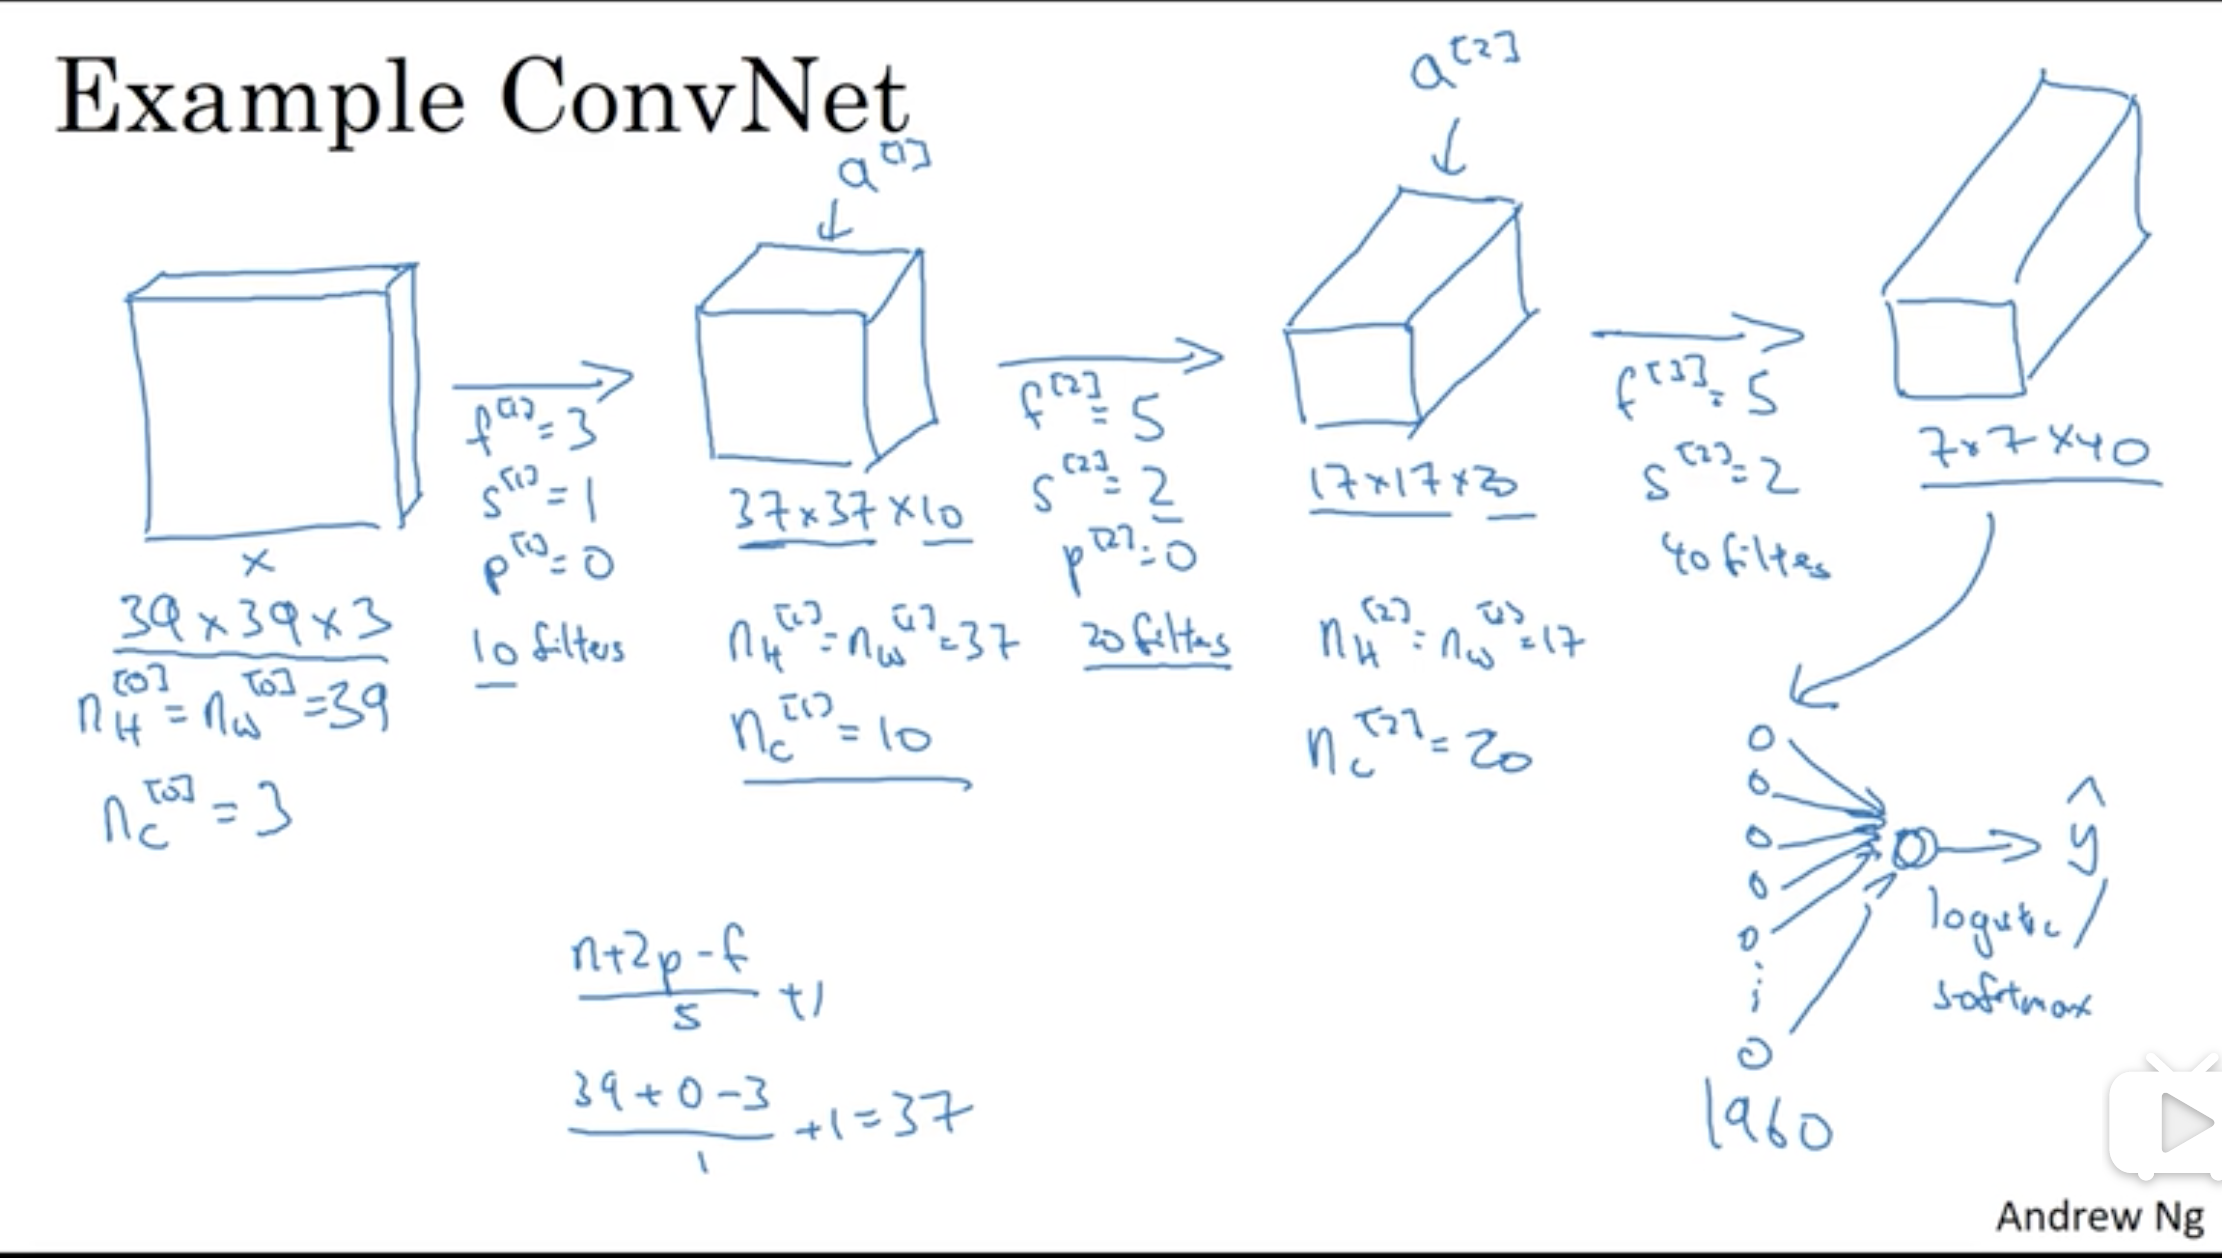 Example ConvNet
a[1]
a[2]
x
39 x 39 x 3
nH[0] = nW[0] = 39
nC[0] = 3
f[1] = 3
s[1] = 1
p[1] = 0
10 filters
37 x 37 x 10
nH[1] = nW[1] = 37
nC[1] = 10
f[2] = 5
s[2] = 2
p[2] = 0
20 filters
17 x 17 x 20
nH[2] = nW[2] = 17
nC[2] = 20
f[3] = 5
s[2] = 2
40 filters
7 x 7 x 40
ŷ
logistic /
softmax
1960
n+2p-f
s
+1
39 + 0 - 3
1
+1 = 37
Andrew Ng